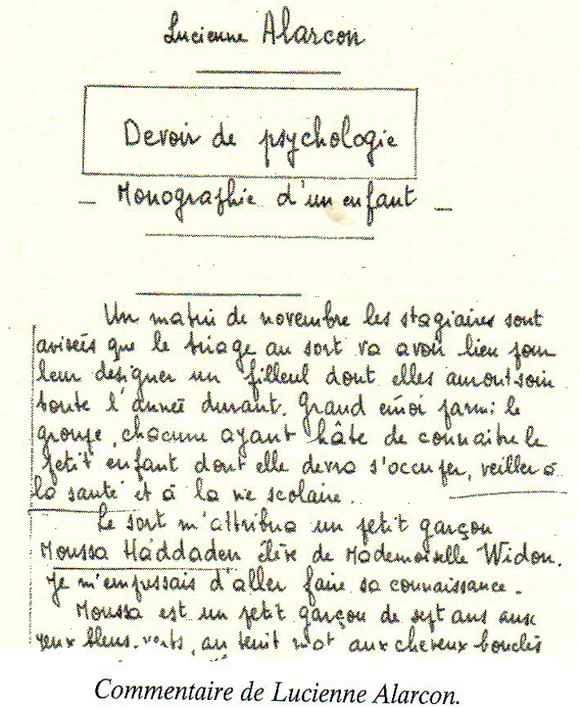 Lucienne Alarcon
Devoir de psychologie
_ Monographie d'un enfant _
Un matin de novembre les stagiaires sont
avisées que le tirage au sort va avoir lieu pour
leur designer un filleul dont elles auront soin
toute l'année durant. Grand émoi parmi le
groupe, chacune ayant hâte de connaitre le
petit enfant dont elle devra s'occuper, veiller à
la santé et à la vie scolaire.
Le sort m'attribua un petit garçon
Moussa Haddaden élève de Mademoiselle Widon.
Je m'empressais d'aller faire sa connaissance.
Moussa est un petit garçon de sept ans aux
yeux bleus-verts, au teint mat aux cheveux bouclés
Commentaire de Lucienne Alarcon.